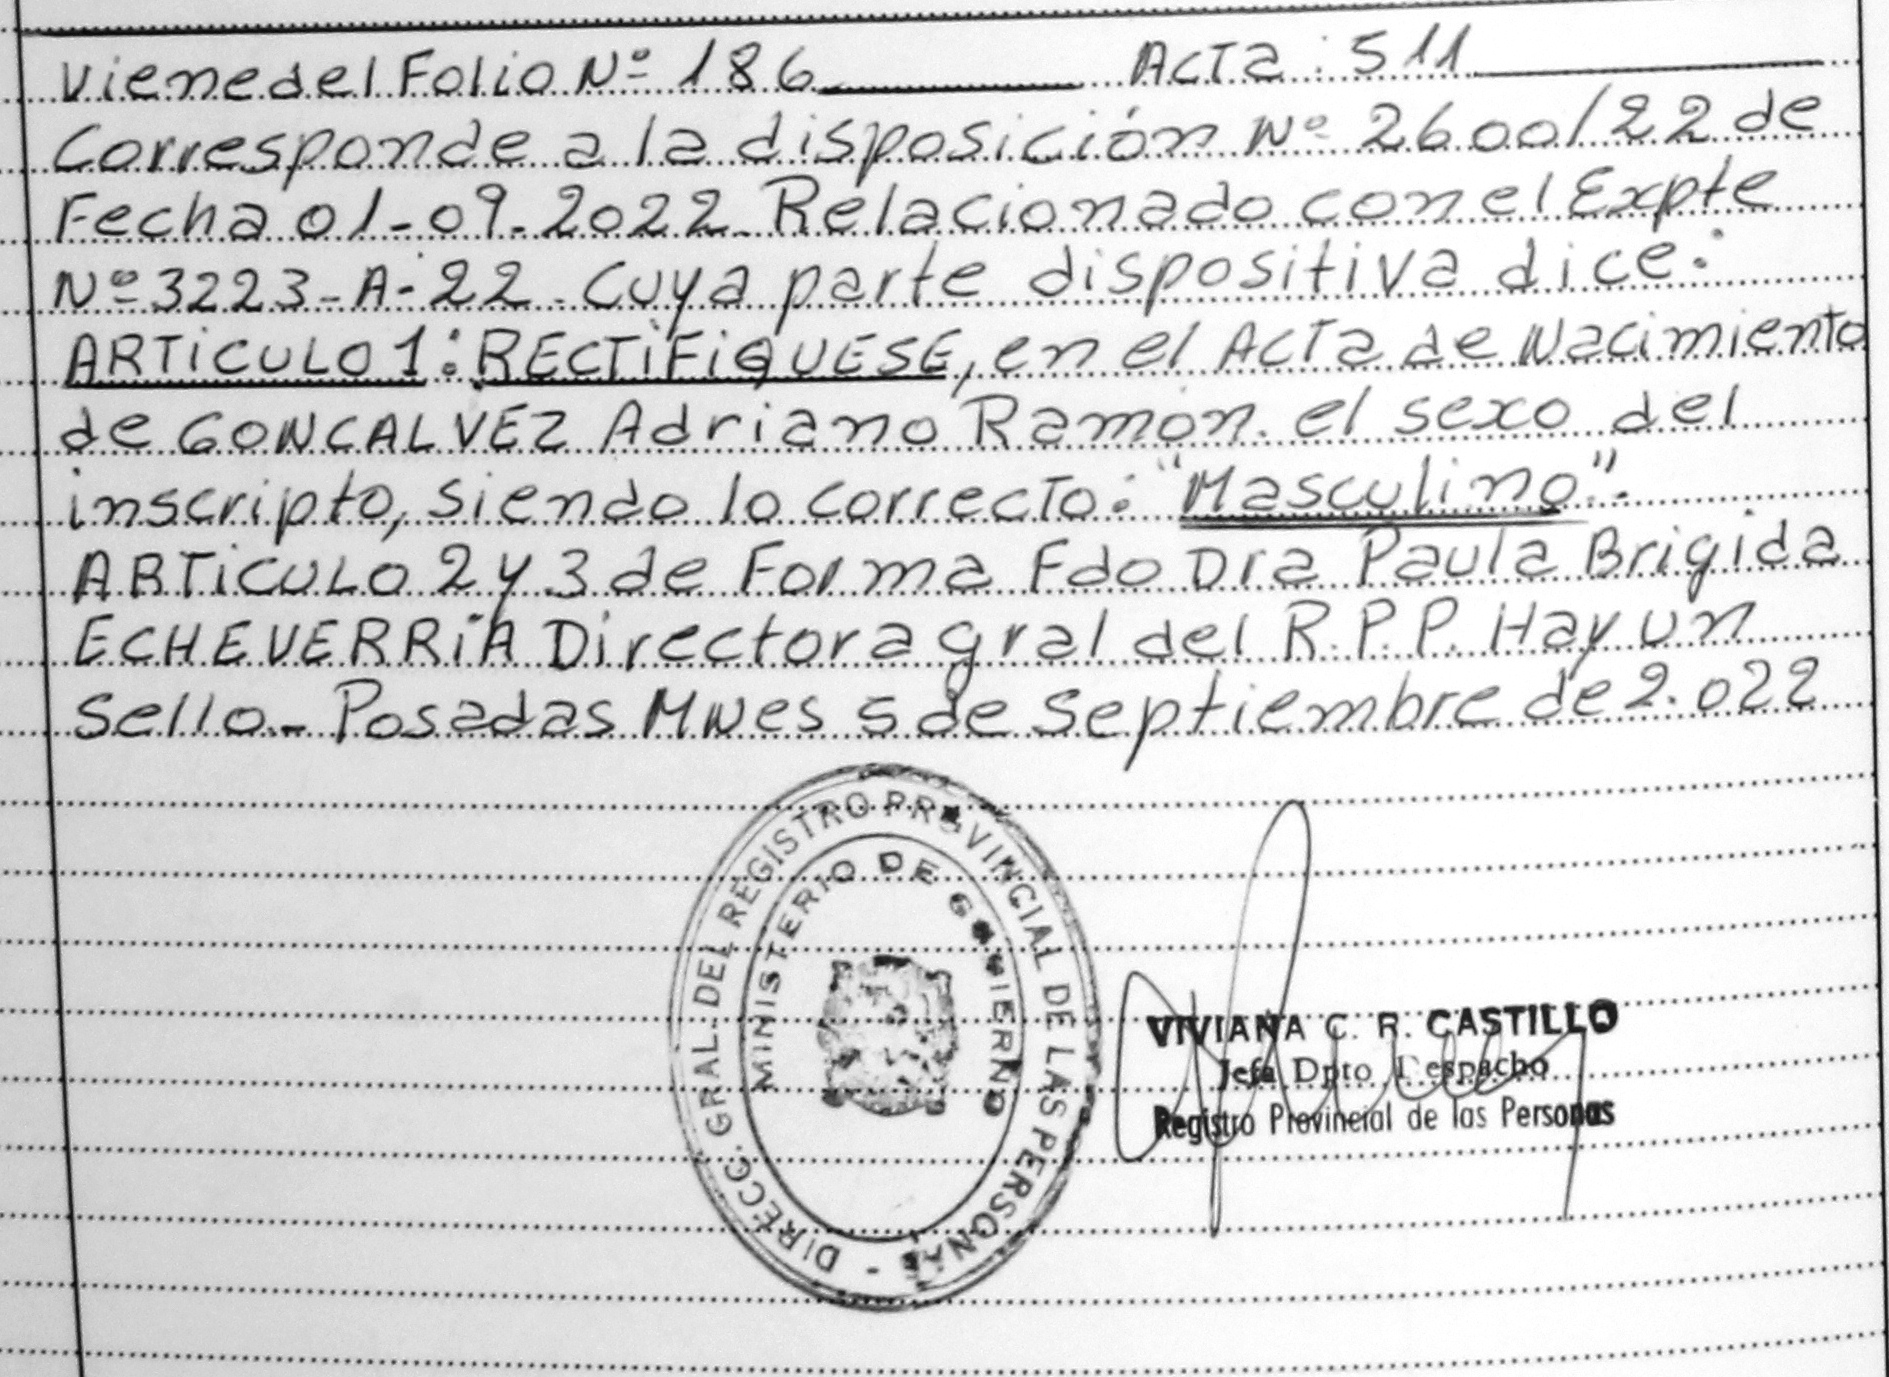 Viene del Folio Nº 186 Acta: 511
Corresponde a la disposición Nº 2600/22 de
Fecha 01-09-2022. Relacionado con el Expte
Nº 3223-A-22. Cuya parte dispositiva dice:
ARTiCULO 1: RECTiFiQUESE, en el Acta de Nacimiento
de GONCALVEZ Adriano Ramón. el sexo del
inscripto, siendo lo correcto: "Masculino".
ARTiCULO 2 y 3 de Forma Fdo Dra Paula Brigida
ECHEVERRíA Directora gral del R.P.P. Hay un
Sello.- Posadas Mnes 5 de Septiembre de 2.022
DIRECC. GRAL. DEL REGISTRO PROVINCIAL DE LAS PERSONAS -
MINISTERIO DE GOBIERNO
VIVIANA C. R. CASTILLO
Jefa Dpto Despacho
Registro Provincial de las Personas